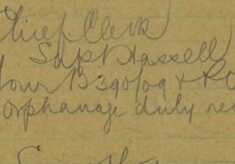 Chief Clerk
Supt Hassell
Your B390/09 & RC
Orphanage duly re